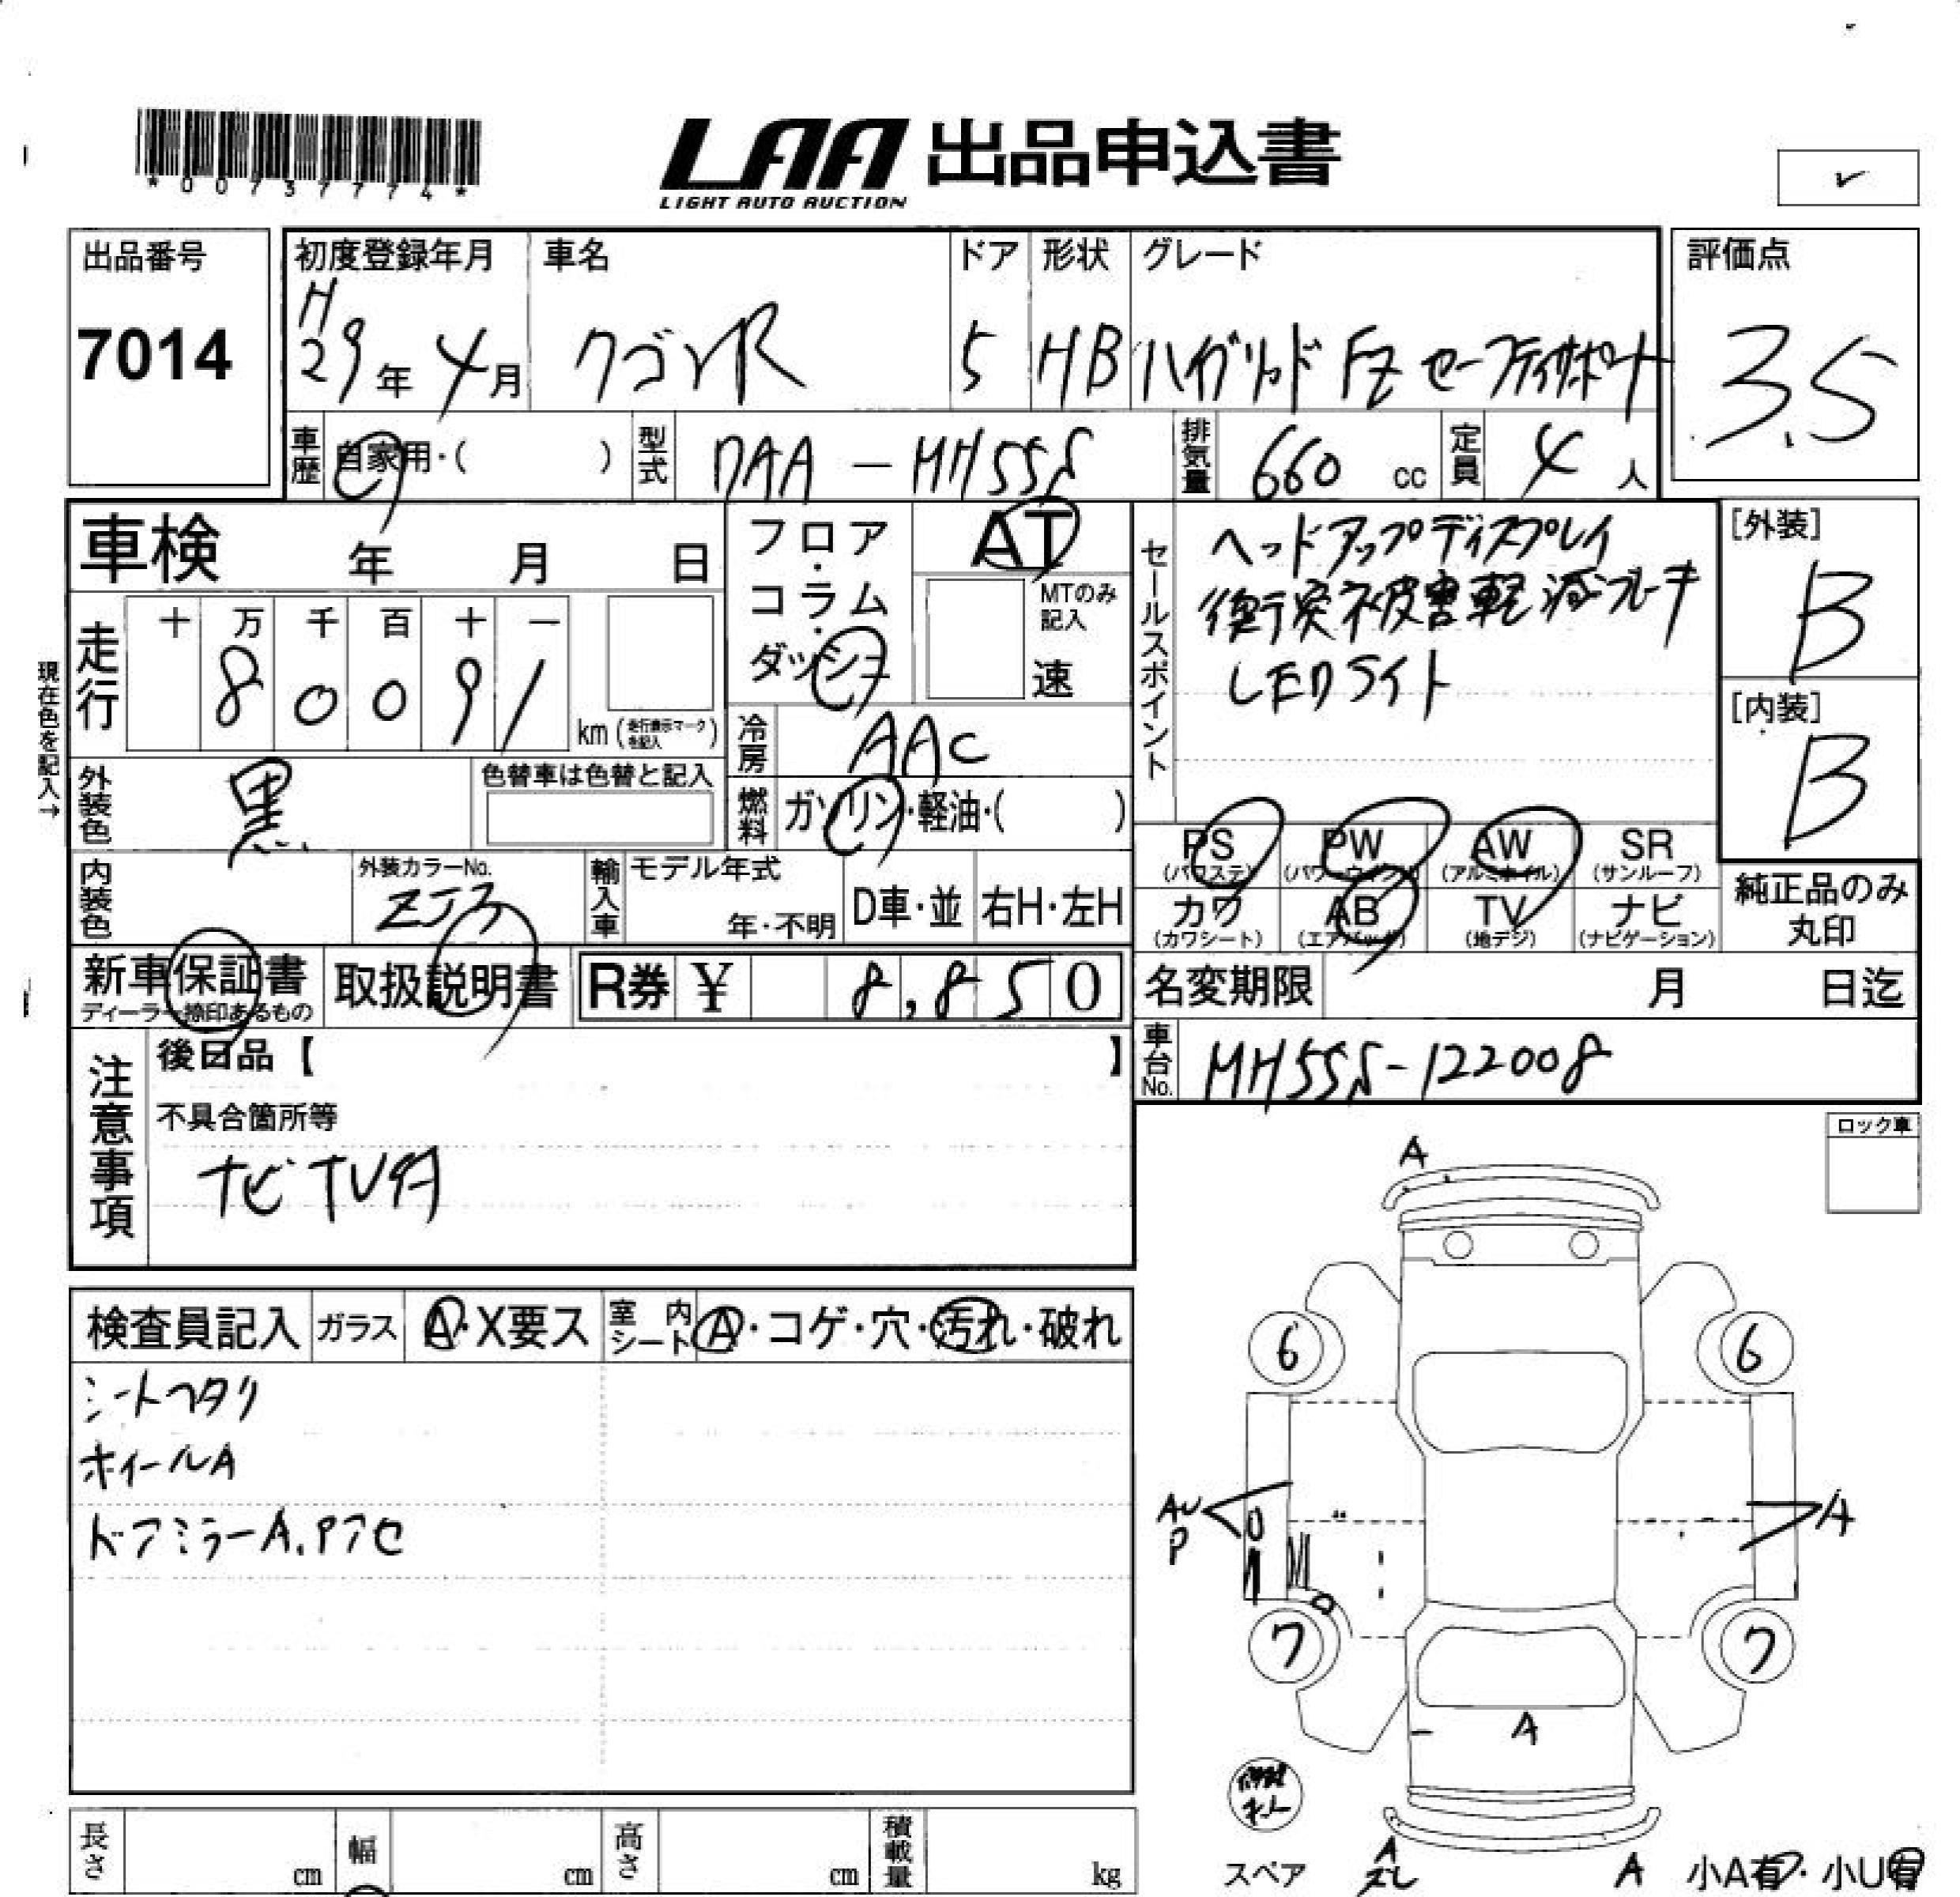 *00737774*
LAA 出品申込書
LIGHT AUTO AUCTION
✓
出品番号
7014
初度登録年月 車名 ドア 形状 グレード
H29年 4月 ワゴンR 5 HB ハイブリッド FZ セーフティサポート
評価点
3.5
車歴 自家用・( ) 型式 DAA-MH55S 排気量 660 cc 定員 4人
車検 年 月 日
フロア・コラム・ダッシュ
AT
MTのみ記入
速
現在色を記入→
走行 十 万 千 百 十 一
8 0 0 9 1
km (走行表示マークを記入)
冷房 AAC
外装色 黒 色替車は色替と記入
燃料 ガソリン・軽油・( )
内装色
外装カラーNo.
ZJ3
輸入車 モデル年式
年・不明 D車・並 右H・左H
セールスポイント
ヘッドアップディスプレイ
衝突被害軽減ブレーキ
LEDライト
[外装]
B
[内装]
B
PS PW AW SR
(パワステ) (パワーウィンドウ) (アルミホイル) (サンルーフ)
カワ AB TV ナビ
(カワシート) (エアバッグ) (地デジ) (ナビゲーション)
純正品のみ
丸印
新車保証書 取扱説明書 R券 ¥ 8,850
ディーラー捺印あるもの
名変期限 月 日迄
車台No. MH55S-122008
注意事項
後日品【 】
不具合箇所等
ナビTV付
ロック車
検査員記入 ガラス A・X要ス 室内シート A・コゲ・穴・汚れ・破れ
シートヘタリ
ホイールA
ドアミラーA.Pアセ
A
6 6
AU
P
A
7 7
A
A
A
スペア
小A有・小U有
長さ cm 幅 cm 高さ cm 積載量 kg